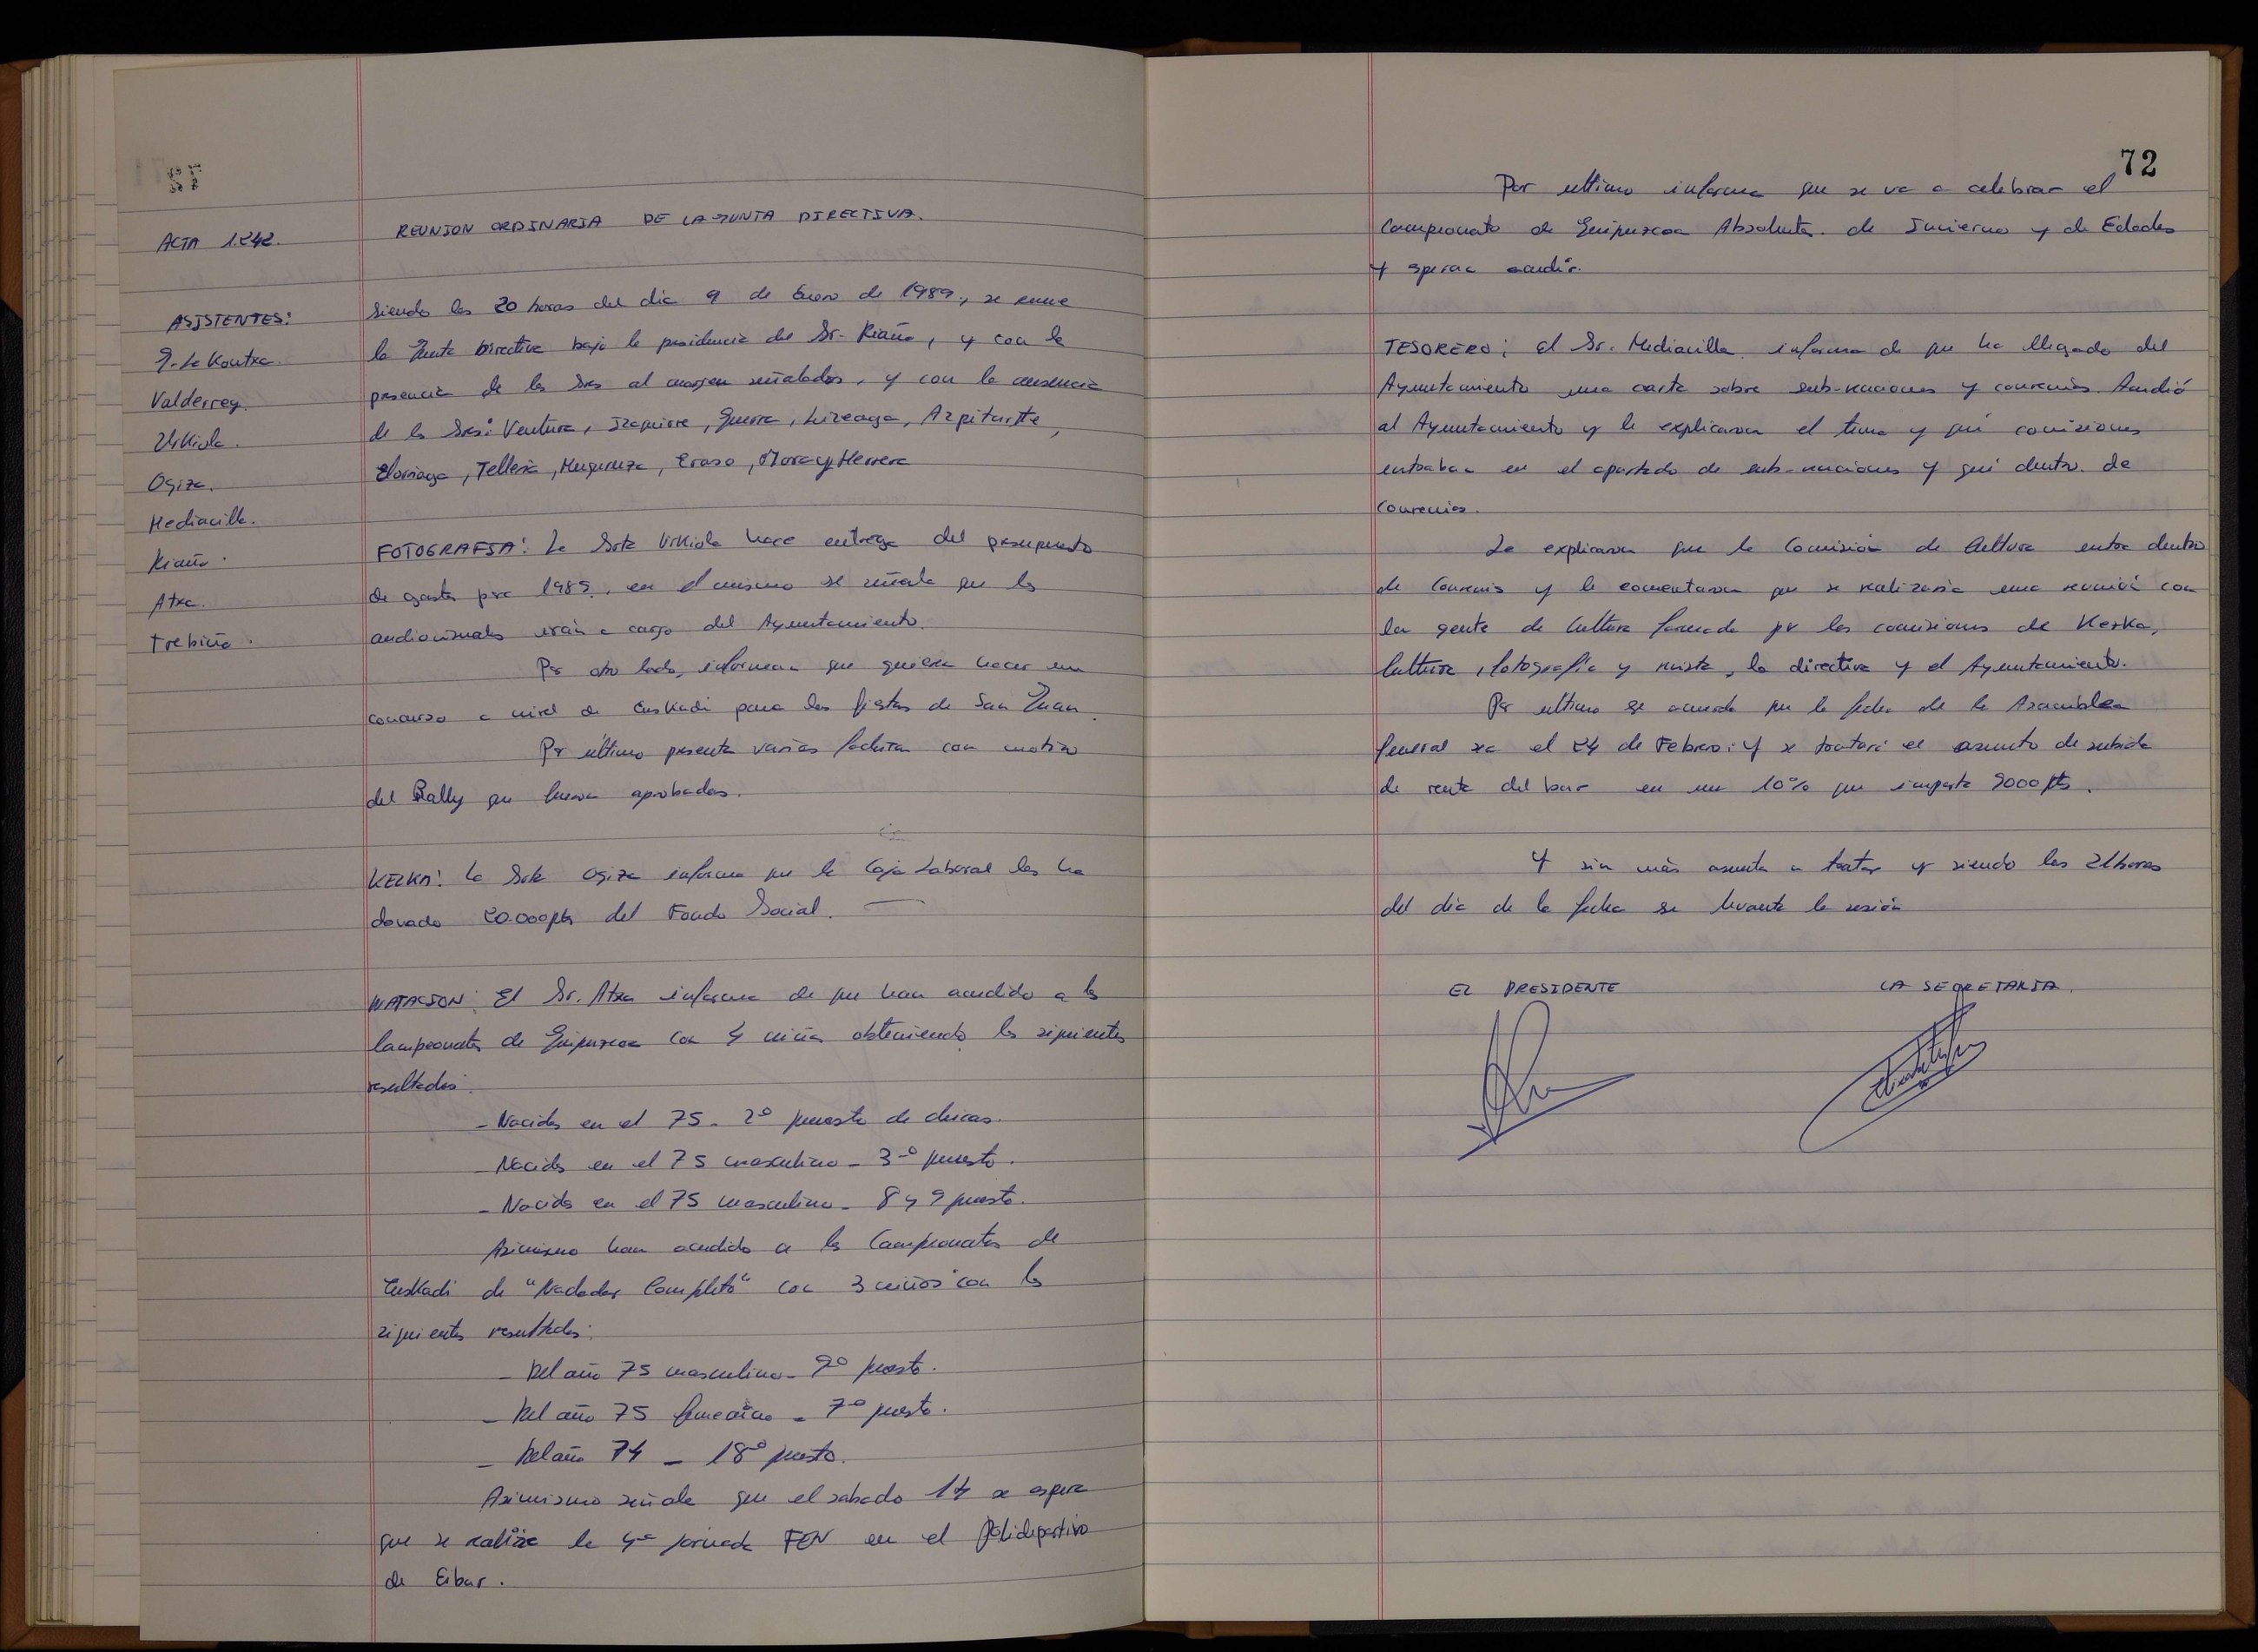 ACTA 1.242.
REUNION ORDINARIA DE LA JUNTA DIRECTIVA.
ASISTENTES:
G. La Kontxa.
Valderrey.
Urkiola.
Ogiza.
Mediavilla.
Riaño.
Atxa.
Trebiño.
Siendo las 20 horas del dia 9 de Enero de 1989, se reune
la Junta Directiva bajo la presidencia del Sr. Riaño, y con la
presencia de los Sres al margen señalados, y con la ausencia
de los Sres: Ventura, Izaguirre, Guerra, Lizeaga, Azpitarte,
Elorriaga, Telleria, Muguruza, Eraso, Mora y Herrera
FOTOGRAFIA: La Srta Urkiola hace entrega del presupuesto
de gastos para 1989, en el mismo se señala que los
audiovisuales irán a cargo del Ayuntamiento.
Por otro lado, informan que quieren hacer un
concurso a nivel de Euskadi para las fiestas de San Juan.
Por último presenta varias facturas con motivo
del Rally que fueron aprobadas.
KEZKA: La Srta Ogiza informa que la Caja Laboral les ha
donado 20.000 pts del Fondo Social.
NATACION: El Sr. Atxa informa de que han acudido a los
Campeonatos de Guipuzcoa con 4 niños obteniendo los siguientes
resultados:
- Nacidos en el 75 - 2º puesto de chicas.
- Nacidos en el 75 masculino - 3º puesto.
- Nacidos en el 75 masculino - 8 y 9 puesto.
Asimismo han acudido a los Campeonatos de
Euskadi de "Nadador Completo" con 3 niños con los
siguientes resultados:
- Del año 75 masculino - 9º puesto.
- Del año 75 femenino - 7º puesto.
- Del año 74 - 18º puesto.
Asimismo señala que el sabado 14 se espera
que se realize la 4ª jornada FEN en el Polideportivo
de Eibar.
72
Por ultimo informa que se va a celebrar el
Campeonato de Guipuzcoa Absolutos de Invierno y de Edades
y esperan acudir.
TESORERO: El Sr. Mediavilla informa de que ha llegado del
Ayuntamiento una carta sobre sub-venciones y convenios. Acudió
al Ayuntamiento y le explicaron el tema y qué comisiones
entraban en el apartado de sub-venciones y qué dentro de
Convenios.
Le explicaron que la Comisión de Cultura entra dentro
de Convenios y le comentaron que se realizaria una reunión con
la gente de Cultura formada por las comisiones de Kezka,
Cultura, fotografia y revista, la directiva y el Ayuntamiento.
Por ultimo se acuerda que la fecha de la Asamblea
General sea el 24 de Febrero: y se tratará el asunto de subida
de renta del bar en un 10% que importa 9000 pts.
Y sin más asuntos a tratar y siendo las 21 horas
del dia de la fecha se levanta la sesión
EL PRESIDENTE
LA SECRETARIA.